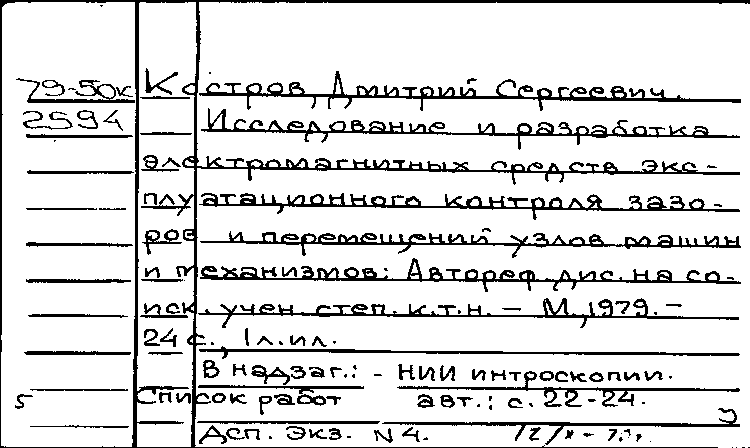 79-50к Костров, Дмитрий Сергеевич.
2594 Исследование и разработка
электромагнитных средств экс-
плуатационного контроля зазо-
ров и перемещений узлов машин
и механизмов: Автореф. дис. на со-
иск. учен. степ. к.т.н. – М., 1979. –
24 с., 1 л. ил.
В надзаг.: - НИИ интроскопии.
5 Список работ авт.: с. 22-24.
Дсп. Экз. N 4.